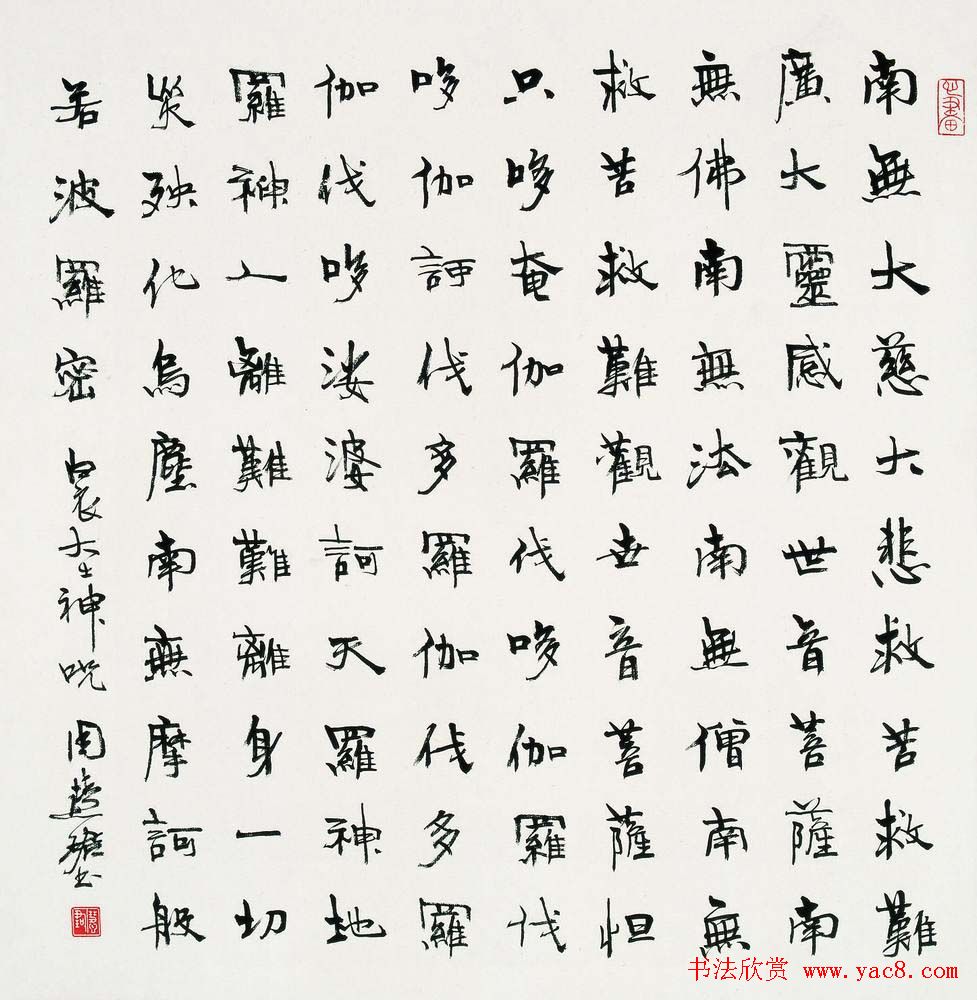 南無大慈大悲救苦救難
廣大靈感觀世音菩薩南
無佛南無法南無僧南無
救苦救難觀世音菩薩怛
只哆奄伽羅伐哆伽羅伐
哆伽訶伐多羅伽伐多羅
伽伐哆娑婆訶天羅神地
羅神人離難難離身一切
災殃化為塵南無摩訶般
若波羅密 白衣大士神咒 周慧珺書
书法欣赏 www.yac8.com